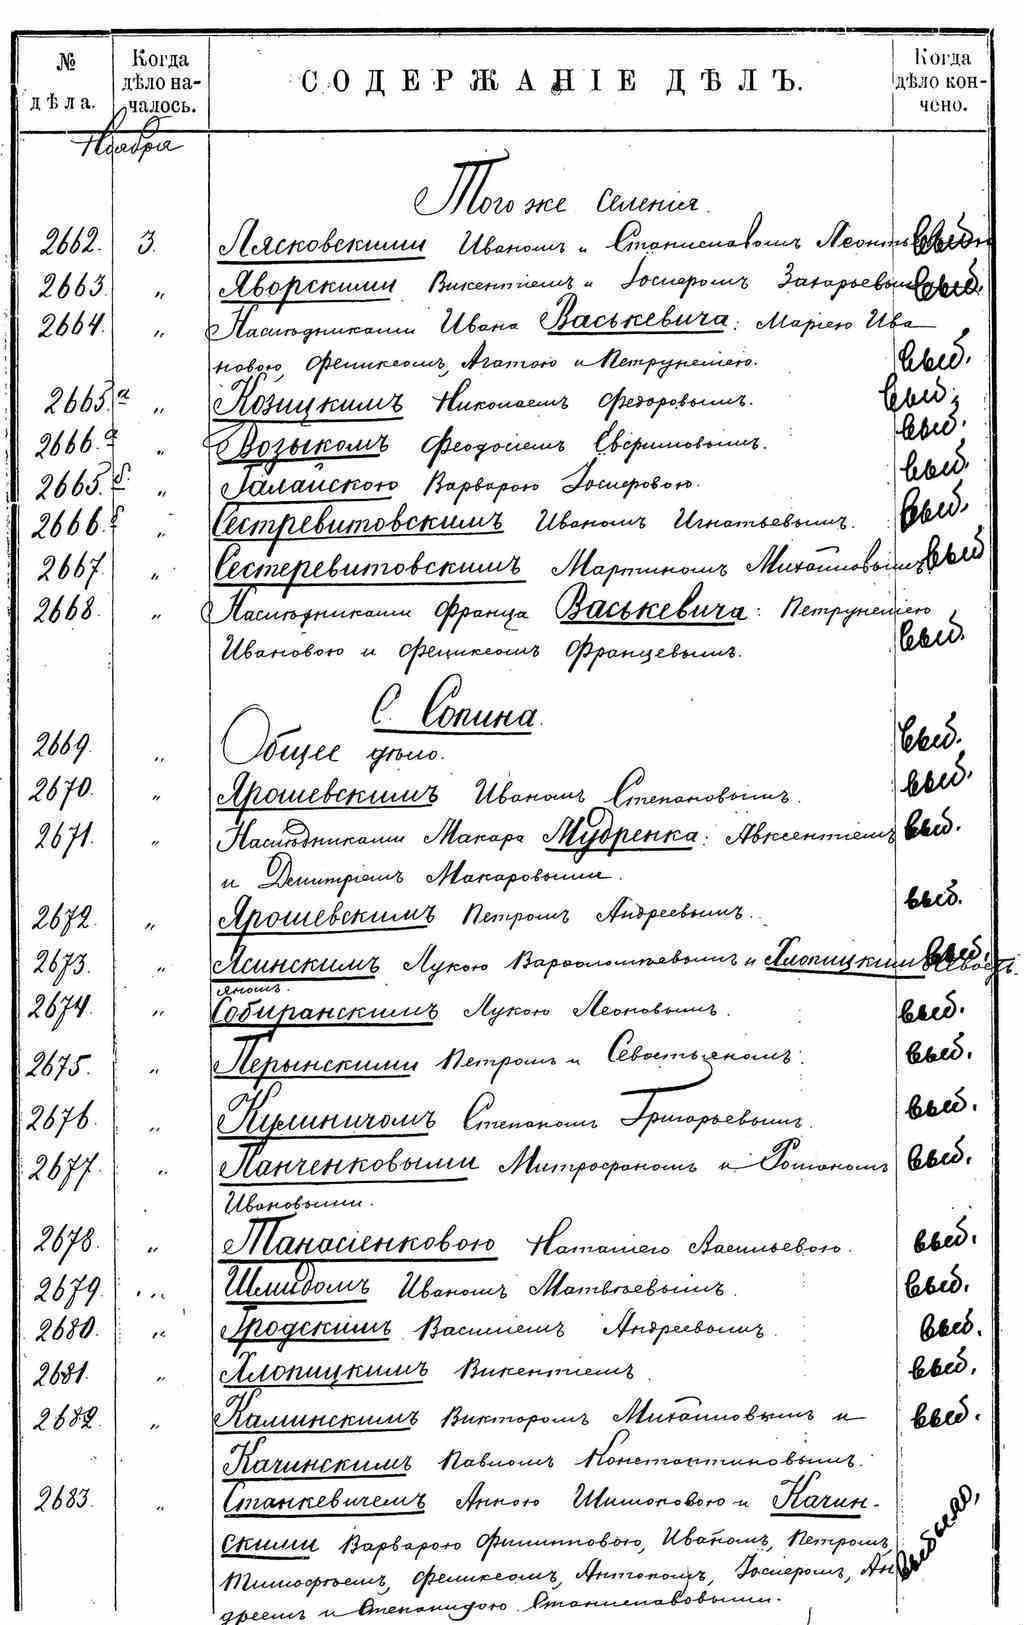 № дѣла. Когда дѣло началось. СОДЕРЖАНІЕ ДѢЛЪ. Когда дѣло кончено.
Ноября
Того же селенія.
2662. 3. Лясковскими Иваномъ и Станиславомъ Леонть выб.
2663. „ Яворскими Викентіемъ и Іосифомъ Захарьевыми выб.
2664. „ Наслѣдниками Ивана Васькевича: Маріею Ива
новою, Феликсомъ, Агатою и Петрунелею. выб.
2665.а „ Козицкимъ Николаемъ Федоровымъ. выб.
2666.а „ Возыкомъ Феодосіемъ выб.
2665.б. „ Галайскою Варварою Іосифовою. выб.
2666.б „ Сестревитовскимъ Иваномъ Игнатьевымъ. выб.
2667. „ Сестеревитовскимъ Мартиномъ Михайловымъ выб
2668. „ Наслѣдниками Франца Васькевича: Петрунелею
Ивановою и Феликсомъ Францевымъ. выб.
С. Сопина.
2669. „ Общее дѣло. выб.
2670. „ Ярошевскимъ Иваномъ Степановымъ. выб.
2671. „ Наслѣдниками Макара Мудренка: Авксентіемъ выб.
и Димитріемъ Макаровыми.
2672. „ Ярошевскимъ Петромъ Андреевымъ. выб.
2673. „ Ясинскимъ Лукою Варфоломѣевымъ и Хлопицкимъ Севасть выб.
яномъ.
2674. „ Собиранскимъ Лукою Леоновымъ. выб.
2675. „ Перынскими Петромъ и Севостьяномъ. выб.
2676. „ Кулиничомъ Степаномъ Григорьевымъ. выб.
2677. „ Панченковыми Митрофаномъ и Романомъ выб.
Ивановыми.
2678. „ Танасіенковою Наталіею Васильевою. выб.
2679. „ Шмидомъ Иваномъ Матвѣевымъ. выб.
2680. „ Гродскимъ Василіемъ Андреевымъ. выб.
2681. „ Хлопицкимъ Викентіемъ. выб.
2682. „ Каминскимъ Викторомъ Михайловымъ и выб.
Качинскимъ Павломъ Константиновымъ.
2683. „ Станкевичемъ Анною Шимоновою и Качин-
скими Варварою Филипповою, Иваномъ, Петромъ, выбыло,
Тимофѣемъ, Феликсомъ, Антономъ, Іосифомъ, Ан
дреемъ и Степанидою Станиславовыми.